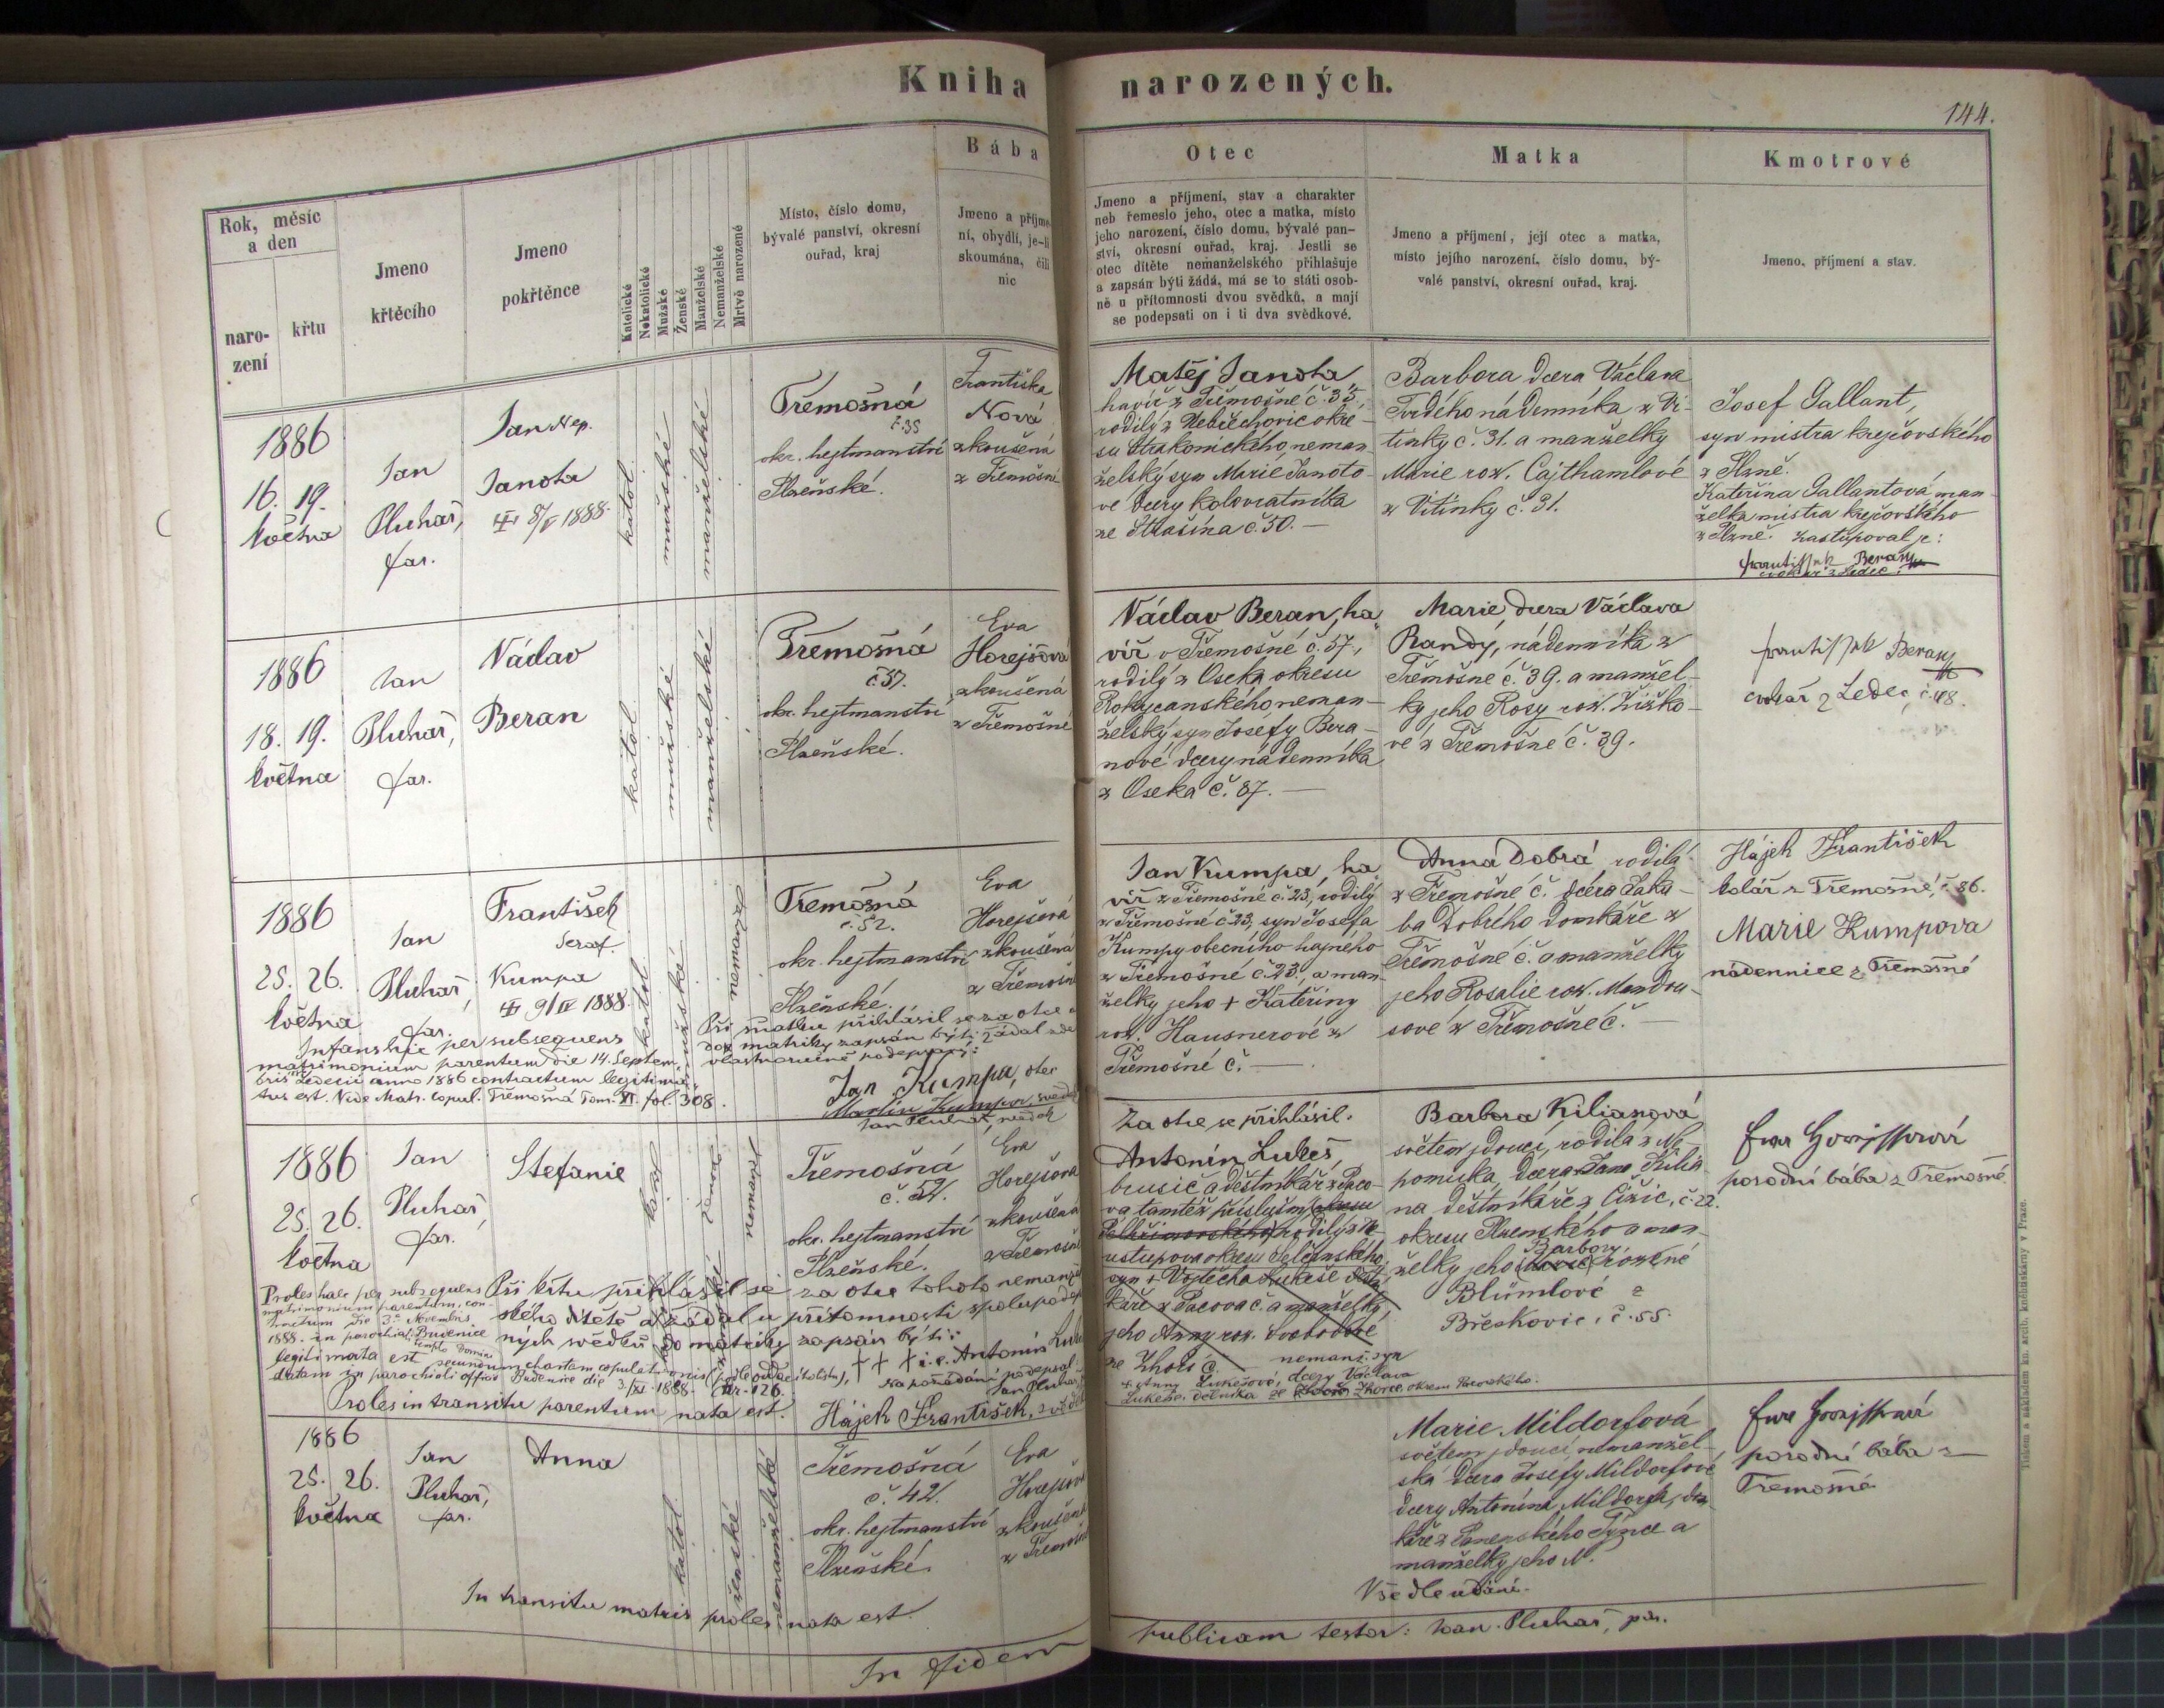 Kniha narozených.
144.
Rok, měsíc
a den
naro-
zení
křtu
Jmeno
křtěcího
Jmeno
pokřtěnce
Katolické
Nekatolické
Mužské
Ženské
Manželské
Nemanželské
Mrtvě narozené
Místo, číslo domu,
bývalé panství, okresní
ouřad, kraj
Bába
Jmeno a příjme-
ní, obydlí, je-li
skoumána, čili
nic
Otec
Jmeno a příjmení, stav a charakter
neb řemeslo jeho, otec a matka, místo
jeho narození, číslo domu, bývalé pan-
ství, okresní ouřad, kraj. Jestli se
otec dítěte nemanželského přihlašuje
a zapsán býti žádá, má se to státi osob-
ně u přítomnosti dvou svědků, a mají
se podepsati on i ti dva svědkové.
Matka
Jmeno a příjmení, její otec a matka,
místo jejího narození, číslo domu, bý-
valé panství, okresní ouřad, kraj.
Kmotrové
Jmeno, příjmení a stav.
1886
16. 19.
května
Jan
Pluhař,
far.
Jan Nep.
Janota
8/V 1888.
katol.
mužské
manželské
Třemošná
č. 35
okr. hejtmanství
Plzeňské.
Františka
Nová
zkoušená
z Třemošné
Matěj Janota
havíř z Třemošné č. 35,
rodilý z Nebřechovic okre-
su Strakonického, neman-
želský syn Marie Janoto-
vé dcery kolovratníka
ze Strašína č. 50. —
Barbora dcera Václava
Tvrdého nádenníka z Vi-
tinky č. 31. a manželky
Marie roz. Cajthamlové
z Vitinky č. 31.
Josef Gallant,
syn mistra krejčovského
z Plzně.
Kateřina Gallantová man-
želka mistra krejčovského
z Plzně. zastupoval je:
František Beran
cvokař z Ledec.
1886
18. 19.
května
Jan
Pluhař,
far.
Václav
Beran
katol.
mužské
manželské
Třemošná
č. 57.
okr. hejtmanství
Plzeňské.
Eva
Horejšová
zkoušená
z Třemošné
Václav Beran, ha-
víř v Třemošné č. 57,
rodilý z Oseka okresu
Rokycanského neman-
želský syn Josefy Bera-
nové dcery nádenníka
z Oseka č. 87. —
Marie, dcera Václava
Randy, nádenníka z
Třemošné č. 39. a manžel-
ky jeho Rosy roz. Žižko-
vé z Třemošné č. 39.
František Beran
cvokař z Ledec, č. 48.
1886
25. 26.
května
Jan
Pluhař,
far.
František
Seraf.
Kumpa
9/IV 1888.
katol.
mužské
nemanžel.
Třemošná
č. 52.
okr. hejtmanství
Plzeňské.
Eva
Horejšová
zkoušená
z Třemošné
Jan Kumpa, ha-
víř z Třemošné č. 23, rodilý
z Třemošné č. 23, syn Josefa
Kumpy obecního hajného
z Třemošné č. 23., a man-
želky jeho + Kateřiny
roz. Hausnerové z
Třemošné č. —
Anna Dobrá rodilá
z Třemošné č. dcera Jaku-
ba Dobrého domkáře z
Třemošné č. a manželky
jeho Rosalie roz. Mandou-
sové z Třemošné č. —
Hájek František
kolář z Třemošné, č. 86.
Marie Kumpova
nádennice z Třemošné
Infans hic per subsequens
matrimonium parentum die 14. Septem-
bris Ledecii anno 1886 contractum legitima-
tus est. Vide Matr. copul. Třemošná Tom. VI. fol. 308.
Při křtu přihlásil se za otce a
do matriky zapsán býti žádal a
vlastnoručně podepsaný:
Jan Kumpa, otec
Martin Kumpa, svědek
Jan Pluhař, svědek
1886
25. 26.
května
Jan
Pluhař,
far.
Stefanie
katol.
ženské
nemanž.
Třemošná
č. 52.
okr. hejtmanství
Plzeňské.
Eva
Horejšová
zkoušená
z Třemošné
Za otce se přihlásil:
Antonín Lukeš,
brusič a deštníkář z Paco-
va tamtéž příslušný okresu
Pelhřimovského rodilý z Ne-
ustupova okresu Selčanského,
syn + Vojtěcha Lukeše dešt-
káře z Pacova č. a manželky
jeho Anny roz. Svobodové
ze Zhoře č. — nemanž. syn
+ Anny Lukešové, dcery Václava
Lukeše, dělníka ze Zhoře, okresu Pacovského.
Barbora Kilianová
světem jdoucí, rodilá z Ne-
pomuka, dcera Jana Kilia-
na deštníkáře z Čižic, č. 22.
okresu Plzeňského a man-
želky jeho Barbory rozené
Blümlové z
Břeskovic, č. 55.
Eva Horejssová
porodní bába z Třemošné.
Proles haec per subsequens
matrimonium parentum, con-
tractum die 3ª Novembris
1888. in parochiali templo Budenice
legitimata est secundum chartam copulationis (podle oddacího listu),
datam in parochiali officio Budenice die 3/XI. 1888. Nr. 126.
Při křtu přihlásil se za otce tohoto nemanžel-
ského dítěte a žádal u přítomnosti spolupodepsa-
ných svědků do matriky zapsán býti:
+ + + i. e. Antonín Lukeš
na požádání podepsal
Jan Pluhař,
Proles in transitu parentum nata est.
Hájek František, svědek
1886
25. 26.
května
Jan
Pluhař,
far.
Anna
katol.
ženské
nemanželské
Třemošná
č. 42.
okr. hejtmanství
Plzeňské.
Eva
Horejšová
zkoušená
z Třemošné
Marie Mildorfová
světem jdoucí, nemanžel-
ská dcera Josefy Mildorfové
dcery Antonína Mildorfa,
káře z Panenského Týnce a
manželky jeho N.
Vše dle udání.
Eva Horejssová
porodní bába z
Třemošné
In transitu matris proles nata est.
In fidem publicam testor: Joan. Pluhař, par.
Tiskem a nákladem kn. arcib. knihtiskárny v Praze.